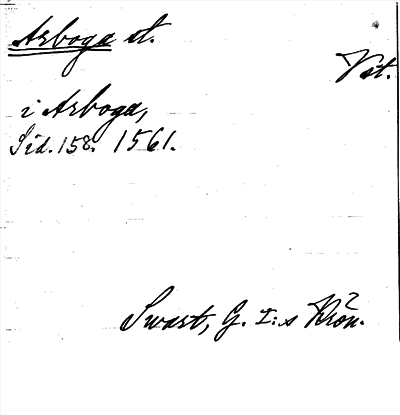 Arboga st.
Vst.
i Arboga,
Sid. 158. 1561.
Swart, G. I:s Krön.